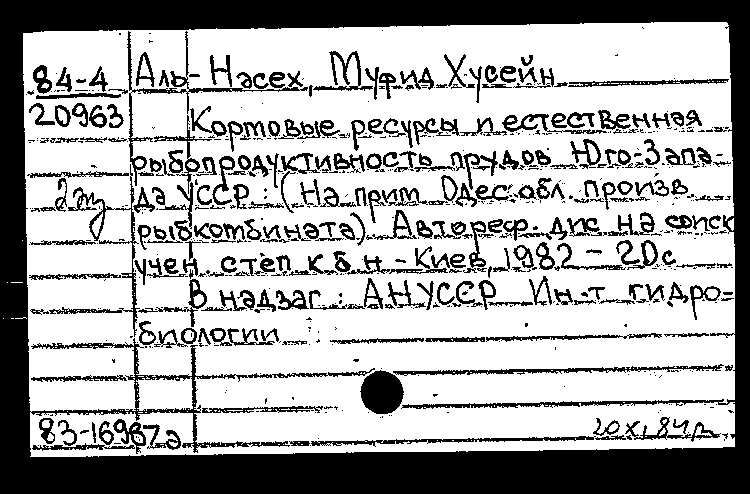 84-4 Аль-Насех, Муфид Хусейн
20963 Кормовые ресурсы и естественная
рыбопродуктивность прудов Юго-Запа-
2 экз да УССР: (На прим. Одес. обл. произв.
рыбкомбината). Автореф. дис. на соиск.
учен. степ. к. б. н. - Киев, 1982 - 20 с.
В надзаг.: АН УССР. Ин-т гидро-
биологии
83-16967а 20 X, 84